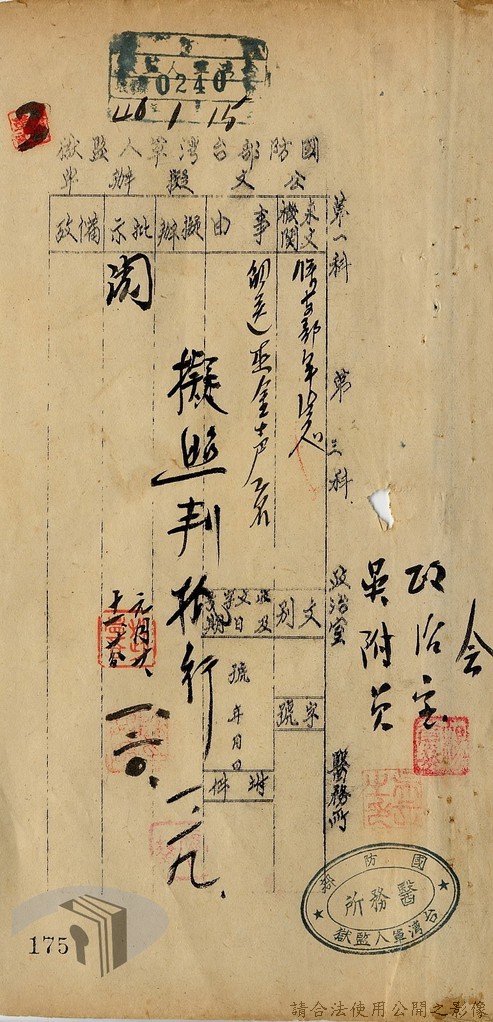 0240
40 1 15
國防部台灣軍人監獄
公文擬辦單
第一科 第三科 政治室 醫務所
來文機關
保安部軍法處
事由
解送
文別
字號
收文字號及日期
號
年月日
附件
擬辦
擬遵判執行 一.一九.
批示
閱
元月十八
一.二〇.
備攷
會
政治室
吳附員
國防部
醫務所
台灣軍人監獄
175
請合法使用公開之影像